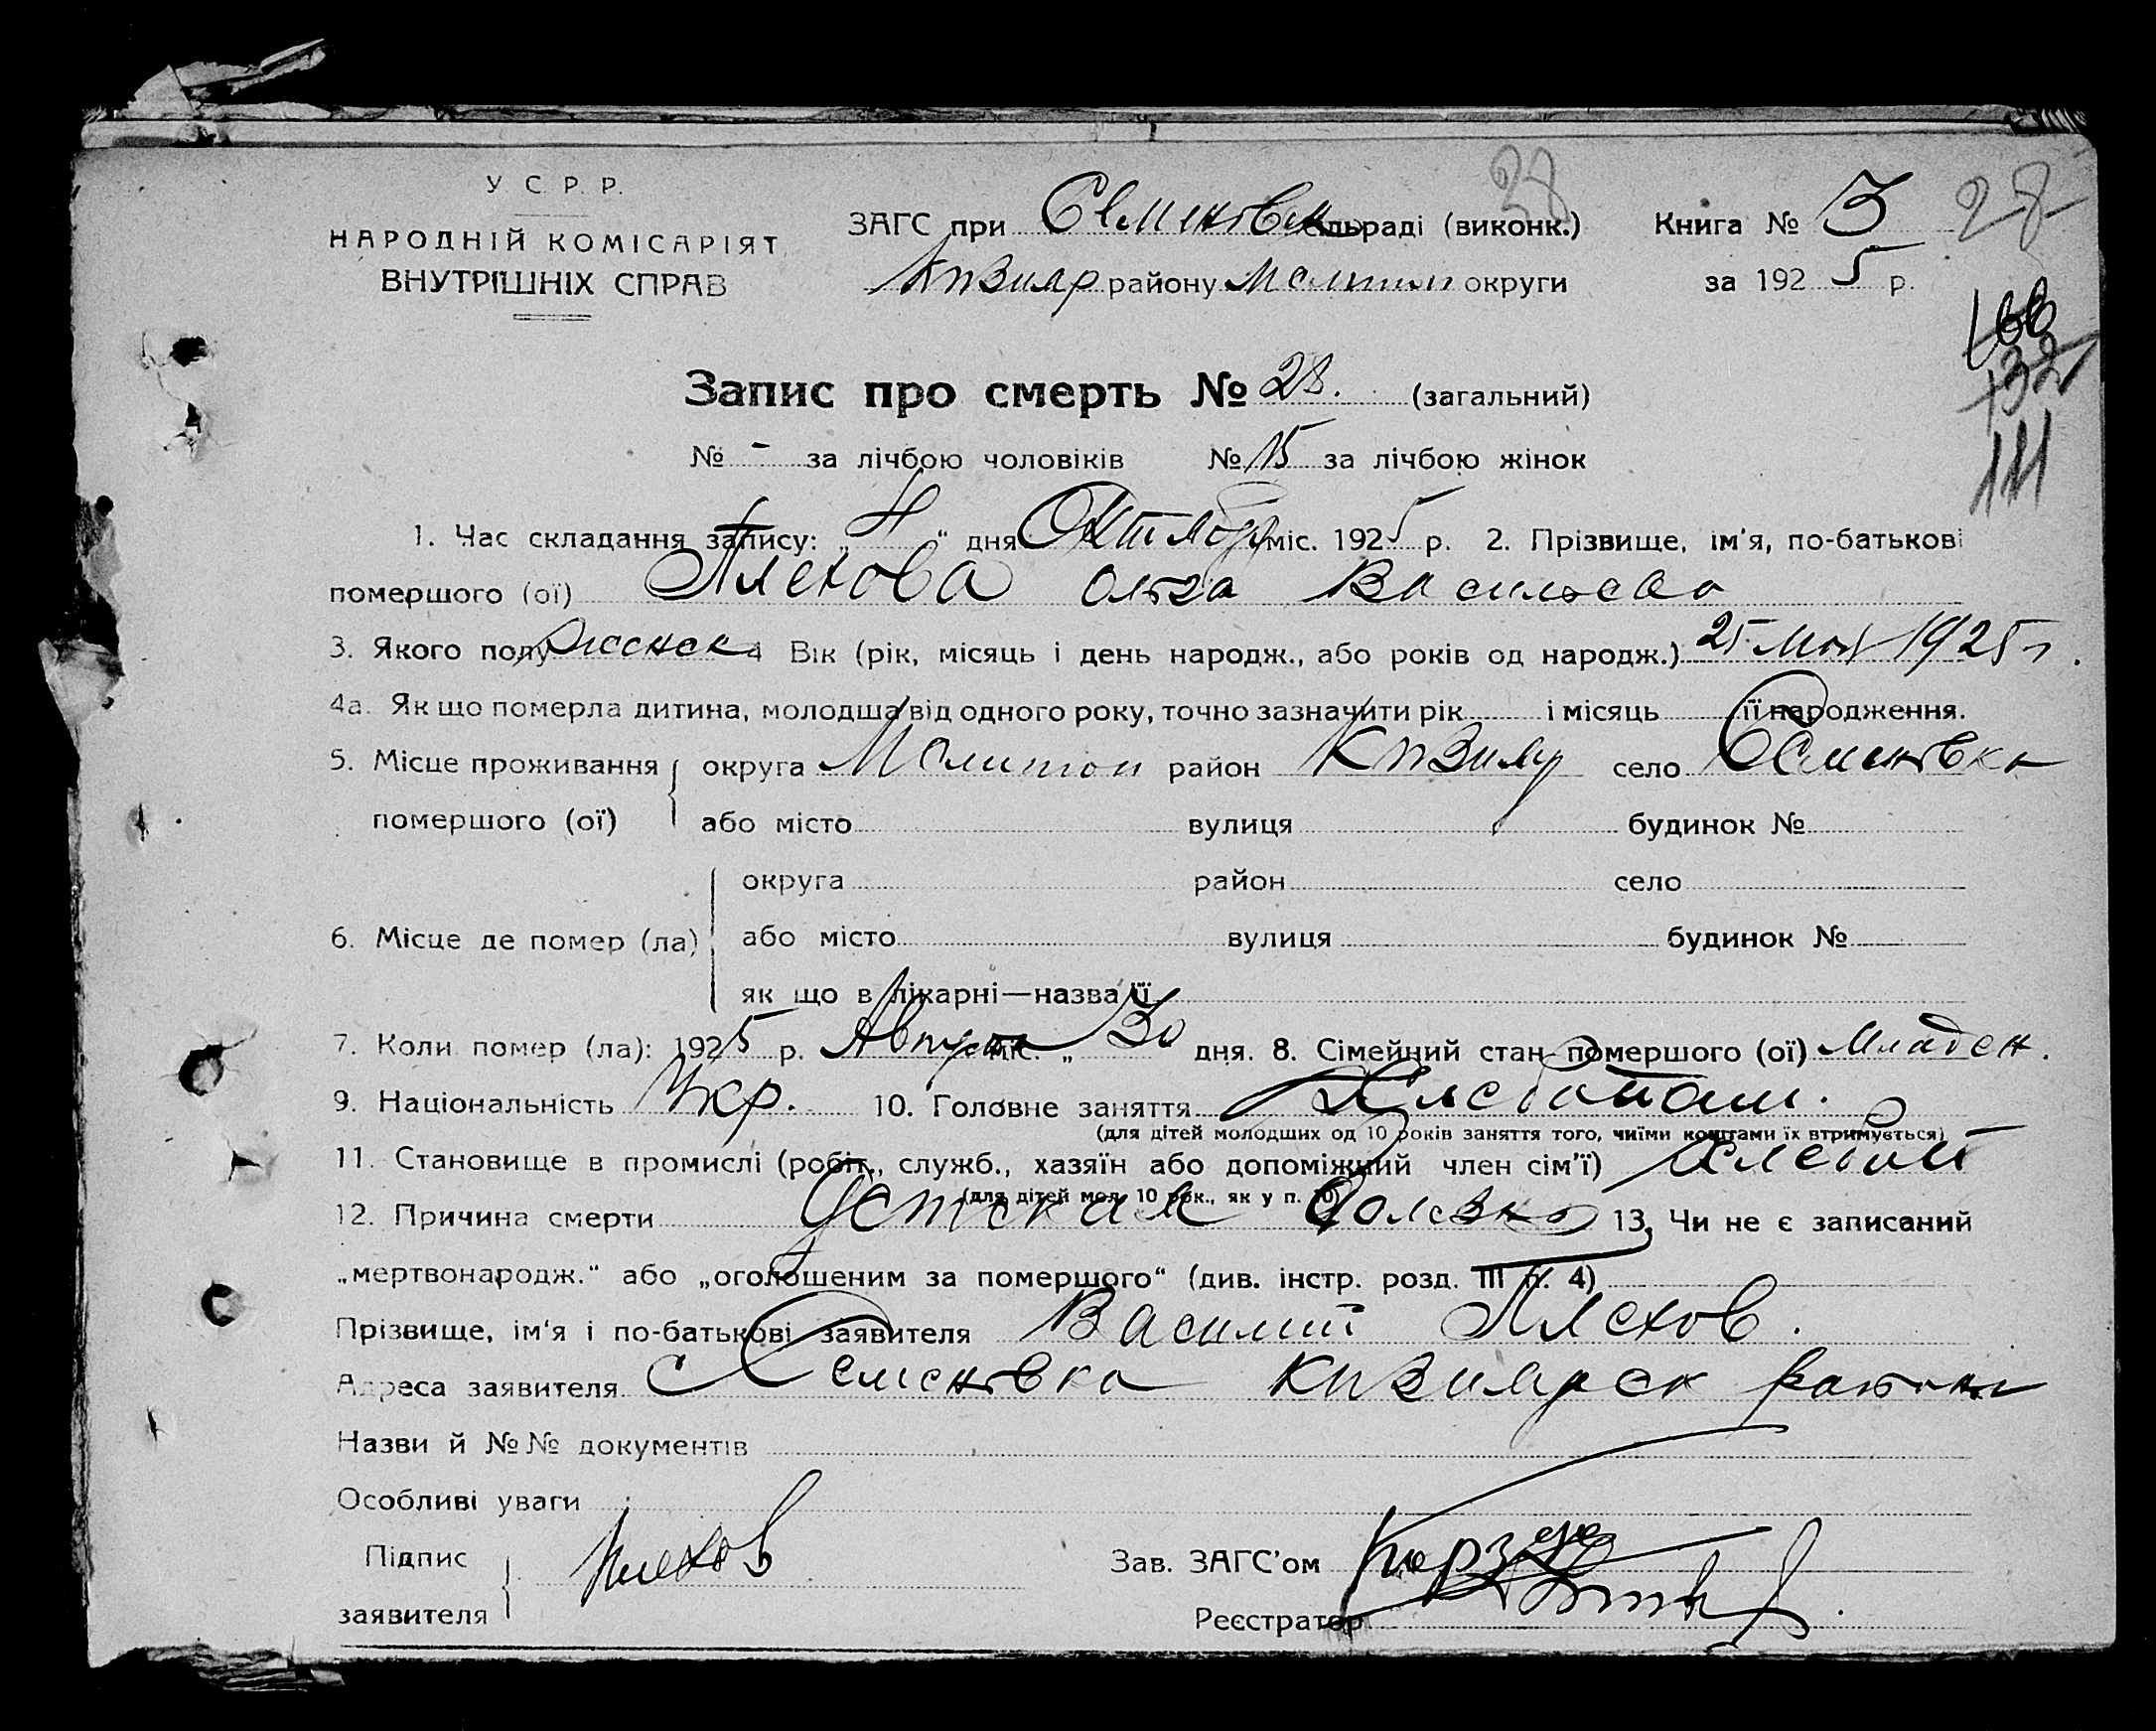 28
У. С. Р. Р.
НАРОДНІЙ КОМІСАРІЯТ
ВНУТРІШНІХ СПРАВ
ЗАГС при Семеновск сільраді (виконк.)
Кизияр району Мелитоп округи
Книга № 3 28
за 1925 р.
166
132
111
Запис про смерть № 28. (загальний)
№ - за лічбою чоловіків № 15 за лічбою жінок
1. Час складання запису: „ 4 “ дня Октября міс. 1925 р. 2. Прізвище, ім'я, по-батькові
помершого (ої) Пляхова Ольга Васильева
3. Якого полу женск 4 Вік (рік, місяць і день народж., або років од народж.) 25 Мая 1925 г.
4а. Як що померла дитина, молодша від одного року, точно зазначити рік і місяць її народження.
5. Місце проживання округа Мелитоп район Кизияр село Семеновка
помершого (ої) або місто вулиця будинок №
округа район село
6. Місце де помер (ла) або місто вулиця будинок №
як що в лікарні—назва її
7. Коли помер (ла): 1925 р. Августа міс. „ 30 дня. 8. Сімейний стан помершого (ої) Младен.
9. Національність Укр. 10. Головне заняття Хлебопаш.
(для дітей молодших од 10 років заняття того, чиїми коштами їх втримується)
11. Становище в промислі (робіт., служб., хазяїн або допоміжний член сім'ї)
(для дітей мол. 10 рок., як у п. 10)
12. Причина смерти Детская болезнь 13. Чи не є записаний
„мертвонародж.“ або „оголошеним за помершого“ (див. інстр. розд. III п. 4)
Прізвище, ім'я і по-батькові заявителя Василий Пляхов.
Адреса заявителя с Семеновка Кизиярск района
Назви й №№ документів
Особливі уваги
Підпис
заявителя
Пляхов
Зав. ЗАГС'ом
Реєстратор